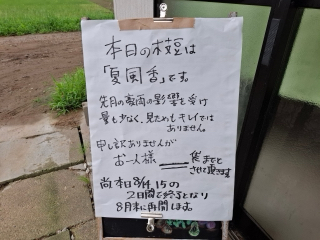 本日の枝豆は
「夏風香」です。
先月の豪雨の影響を受け
量も少なく、見ためもキレイでは
ありません。
申し訳ありませんが
お一人様
までと
させて頂きます
尚本日8/14,15の
2日間で終了となり
8月末に再開します。